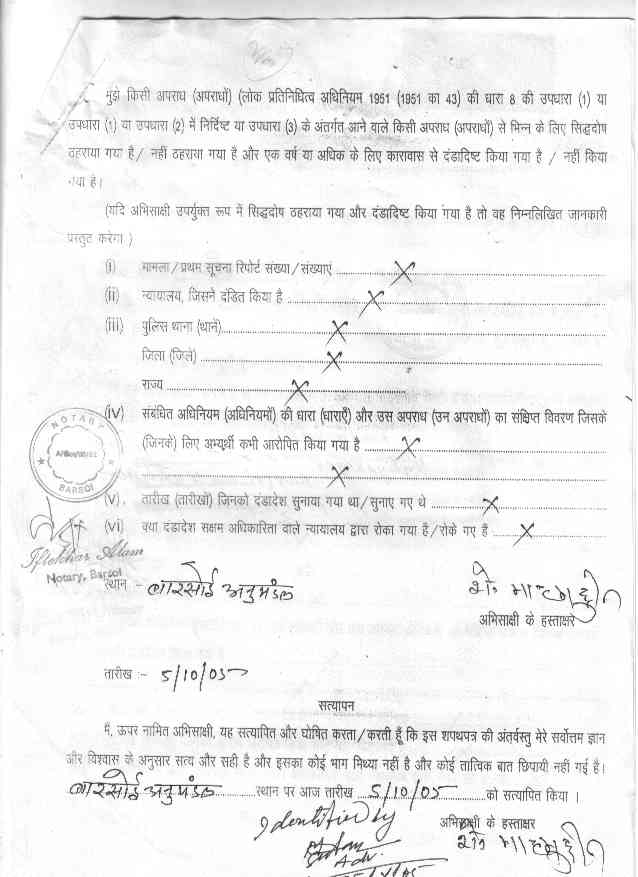 मुझे किसी अपराध (अपराधों) (लोक प्रतिनिधित्व अधिनियम 1951 (1951 का 43) की धारा 8 की उपधारा (1) या
उपधारा (1) या उपधारा (2) में निर्दिष्ट या उपधारा (3) के अंतर्गत आने वाले किसी अपराध (अपराधों) से भिन्न के लिए सिद्धदोष
ठहराया गया है / नहीं ठहराया गया है और एक वर्ष या अधिक के लिए कारावास से दंडादिष्ट किया गया है / नहीं किया
गया है।
(यदि अभिसाक्षी उपर्युक्त रूप में सिद्धदोष ठहराया गया और दंडादिष्ट किया गया है तो वह निम्नलिखित जानकारी
प्रस्तुत करेगा )
(i) मामला / प्रथम सूचना रिपोर्ट संख्या / संख्याएं .......... X ..........
(ii) न्यायालय, जिसने दंडित किया है .......... X ..........
(iii) पुलिस थाना (थाने) .......... X ..........
जिला (जिले) .......... X ..........
राज्य .......... X ..........
(iv) संबंधित अधिनियम (अधिनियमों) की धारा (धाराएँ) और उस अपराध (उन अपराधों) का संक्षिप्त विवरण जिसके
(जिनके) लिए अभ्यर्थी कभी आरोपित किया गया है .......... X ..........
.......... X ..........
NOTARY
BARSOI
(v). तारीख (तारीखों) जिनको दंडादेश सुनाया गया था / सुनाए गए थे .......... X ..........
(vi) क्या दंडादेश सक्षम अधिकारिता वाले न्यायालय द्वारा रोका गया है / रोके गए हैं .......... X ..........
Iftekhar Alam
Notary, Barsoi
स्थान - बारसोई अनुमंडल
अभिसाक्षी के हस्ताक्षर
तारीख :- 5/10/05
सत्यापन
मैं, ऊपर नामित अभिसाक्षी, यह सत्यापित और घोषित करता / करती हूँ कि इस शपथपत्र की अंतर्वस्तु मेरे सर्वोत्तम ज्ञान
और विश्वास के अनुसार सत्य और सही है और इसका कोई भाग मिथ्या नहीं है और कोई तात्विक बात छिपायी नहीं गई है।
बारसोई अनुमंडल .......... स्थान पर आज तारीख 5/10/05 .......... को सत्यापित किया ।
Identified by
अभिसाक्षी के हस्ताक्षर
Adv.